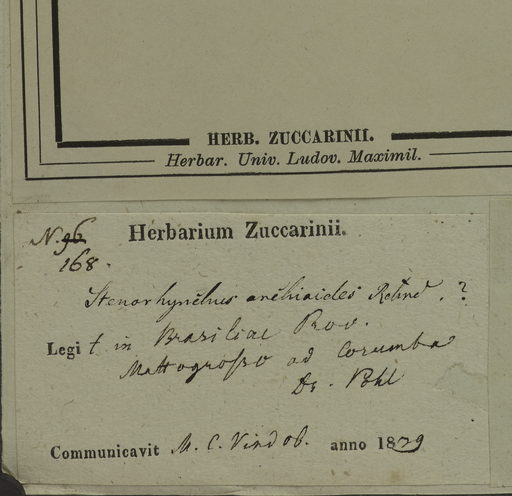 HERB. ZUCCARINII.
Herbar. Univ. Ludov. Maximil.
N. 96
Herbarium Zuccarinii.
168.
?
Legit in Brasiliae Prov.
Mattogrosso ad Corumba
Dr. Pohl
Communicavit M. C. Vindob. anno 1839